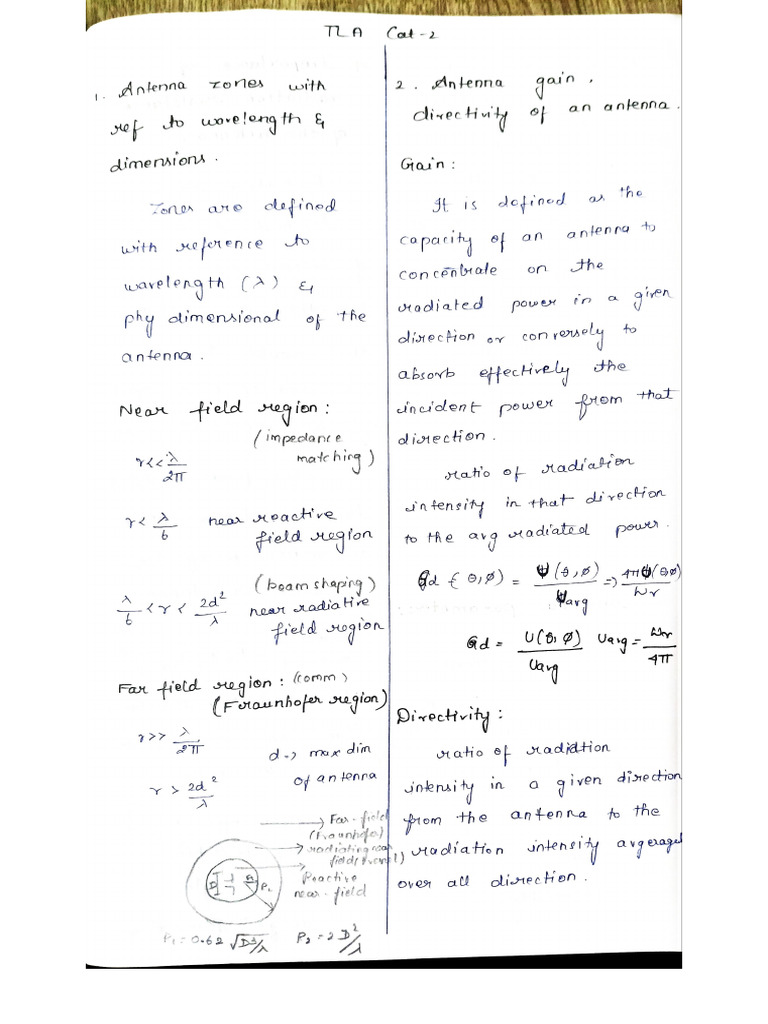 TLA Cat-2
1. Antenna zones with
ref to wavelength &
dimensions.
Zones are defined
with reference to
wavelength (λ) &
phy dimensional of the
antenna.
Near field region:
(impedance
matching)
r<< λ/2π
r< λ/6 near reactive
field region
(beam shaping)
λ/6 < r < 2d²/λ near radiative
field region
Far field region: (comm)
(Fraunhofer region)
r>> λ/2π
d -> max dim
of antenna
r > 2d²/λ
Far-field
(Fraunhofer)
radiating near
field (Fresnel)
Reactive
near-field
D R₁ R₂
R₁ = 0.62 √D³/λ R₂ = 2D²/λ
2. Antenna gain,
directivity of an antenna.
Gain:
It is defined as the
capacity of an antenna to
concentrate on the
radiated power in a given
direction or conversely to
absorb effectively the
incident power from that
direction.
ratio of radiation
intensity in that direction
to the avg radiated power.
Gd (θ,ø) = Ψ(θ,ø)/Ψavg => 4πΨ(θ,ø)/Wr
Gd = U(θ,ø)/Uavg Uavg = Wr/4π
Directivity:
ratio of radiation
intensity in a given direction
from the antenna to the
radiation intensity averaged
over all direction.